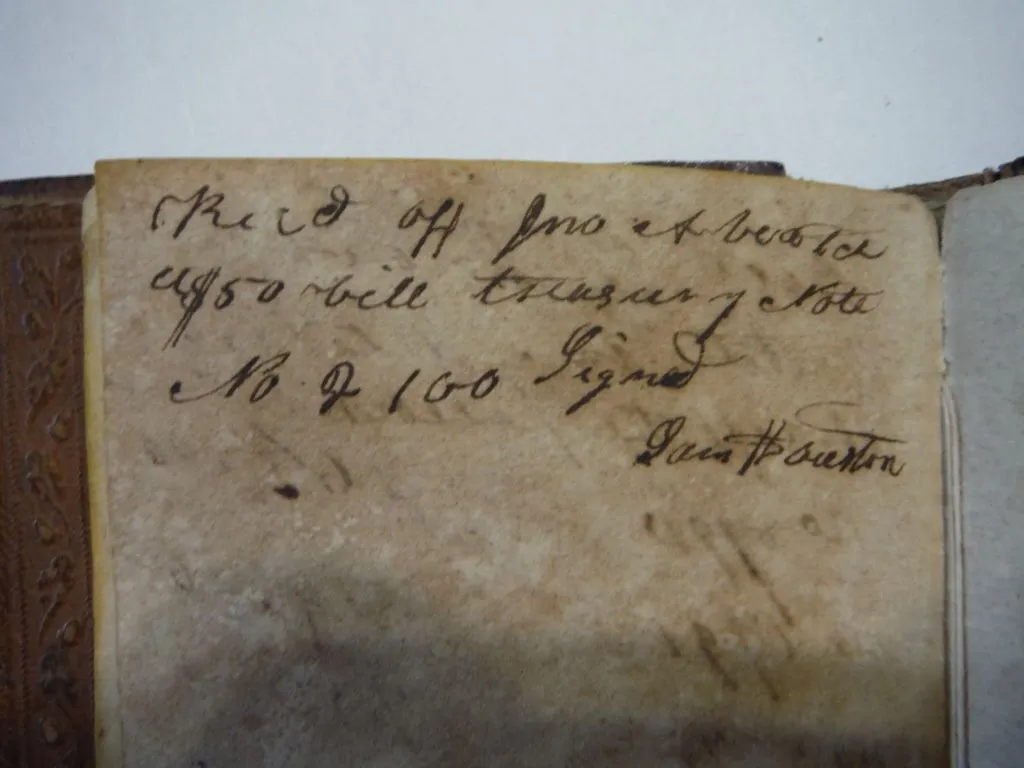 Recd off Jno A
a $50 bill treasury Note
No 2 100 Signed
Sam Houston